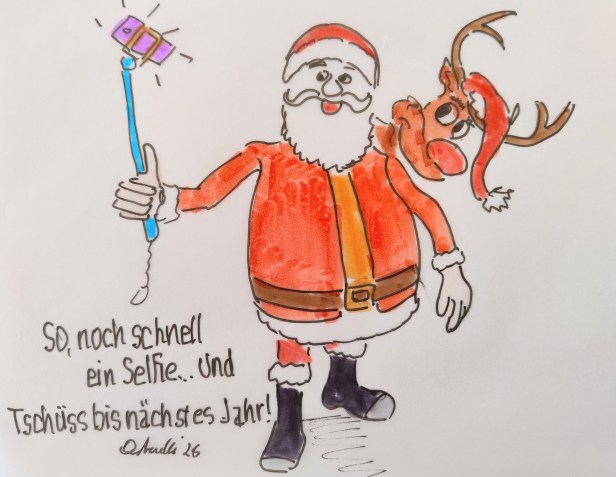 So, noch schnell
ein Selfie... Und
Tschüss bis nächstes Jahr!
26